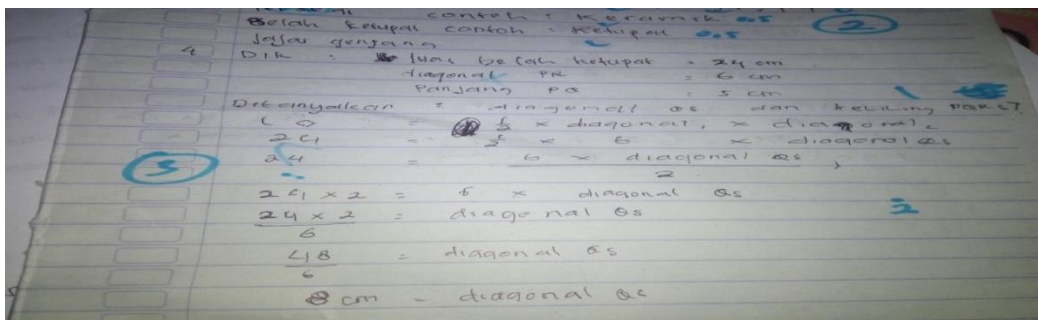 contoh : Keramik 0.5
Belah Ketupat contoh : Ketupat 0.5 2
Jajar genjang
4 Dik : luas belah ketupat = 24 cm
diagonal PR = 6 cm
Panjang PQ = 5 cm
Ditanyakan = diagonal QS dan keliling PQRS?
L ◇ = 1/2 x diagonal1 x diagonal2
24 = 1/2 x 6 x diagonal QS
5 24 = 6 x diagonal QS
2
24 x 2 = 6 x diagonal QS 2
24 x 2 = diagonal QS
6
48 = diagonal QS
6
8 cm = diagonal QS